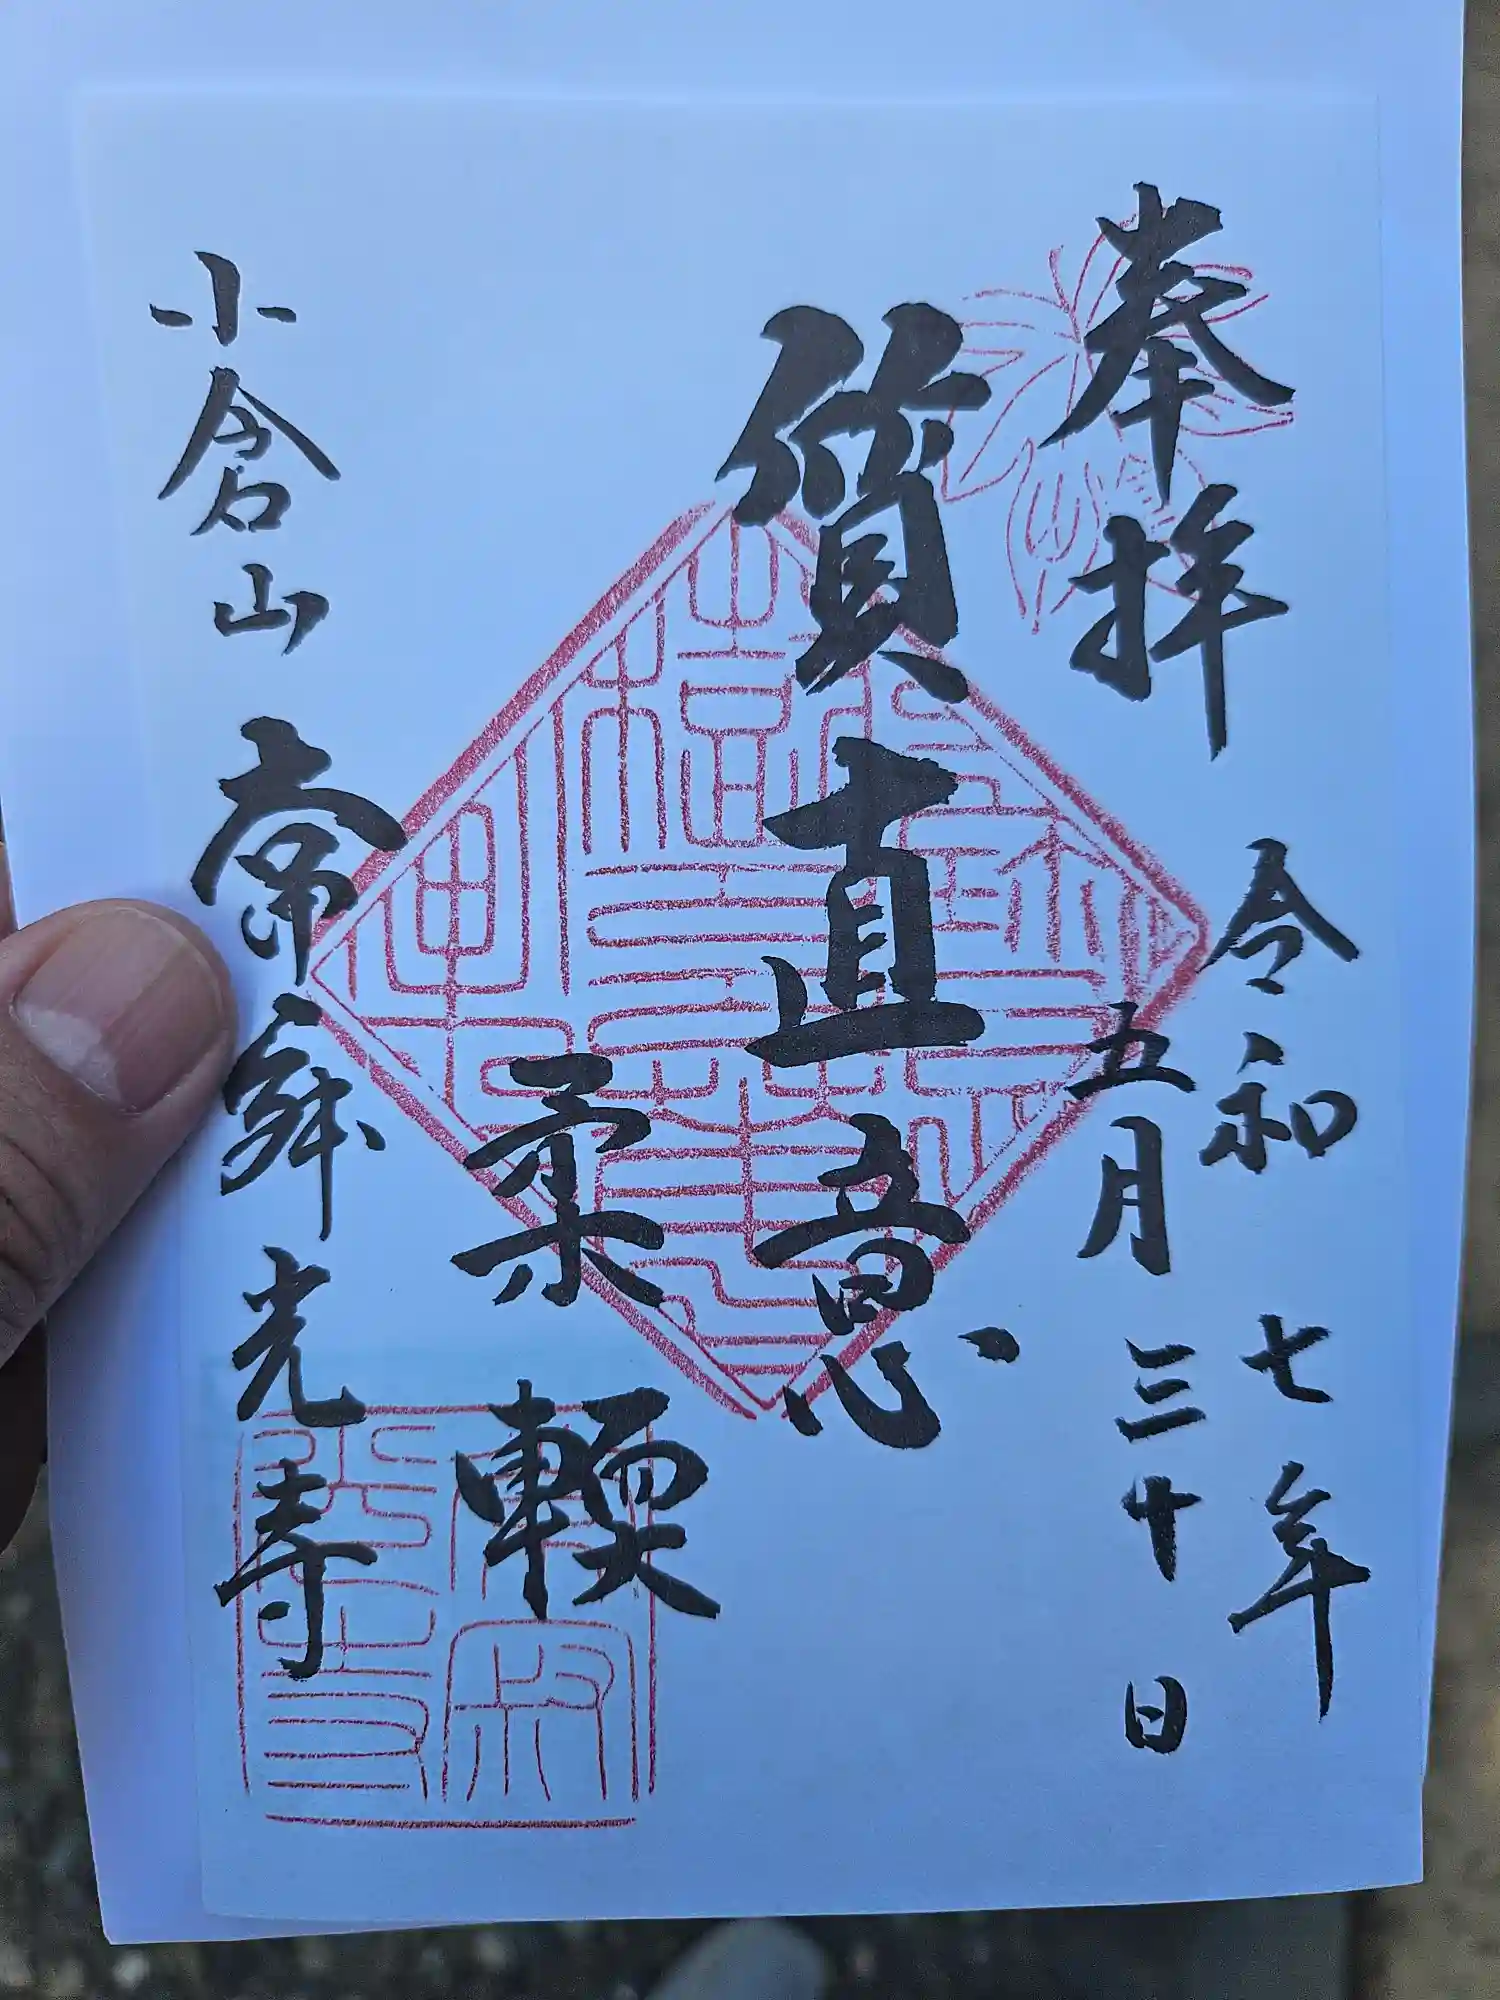 奉拝
令和七年
五月三十日
質直意
柔軟
小倉山
常寂光寺